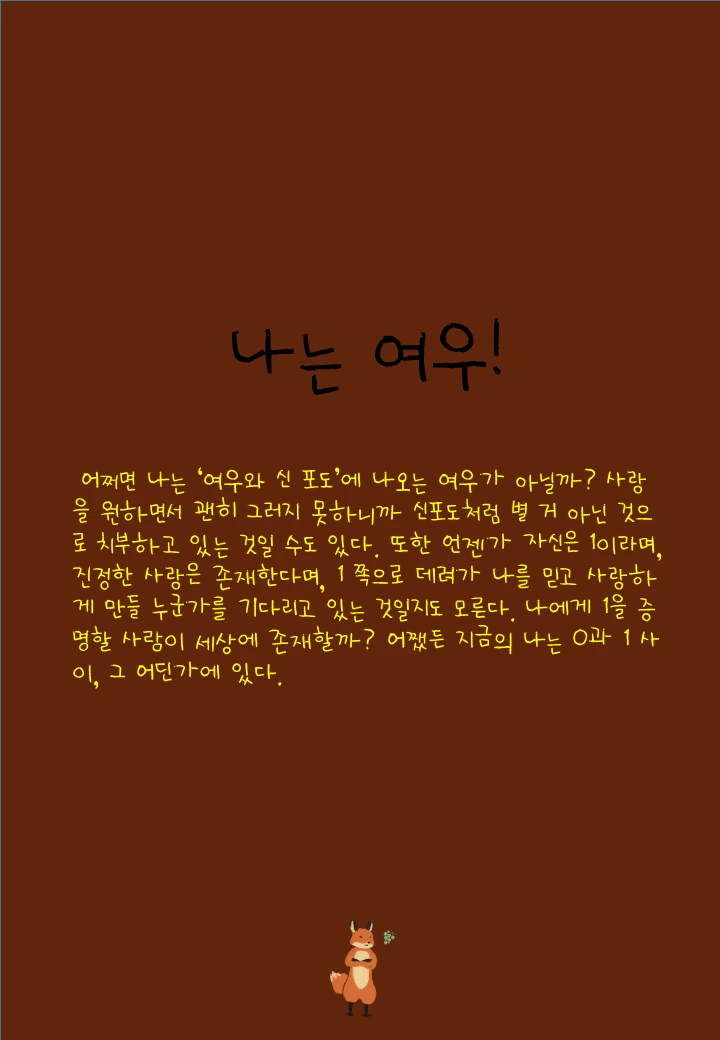 나는 여우!
어쩌면 나는 ‘여우와 신 포도’에 나오는 여우가 아닐까? 사랑
을 원하면서 괜히 그러지 못하니까 신포도처럼 별 거 아닌 것으
로 치부하고 있는 것일 수도 있다. 또한 언젠가 자신은 1이라며,
진정한 사랑은 존재한다며, 1 쪽으로 데려가 나를 믿고 사랑하
게 만들 누군가를 기다리고 있는 것일지도 모른다. 나에게 1을 증
명할 사람이 세상에 존재할까? 어쨌든 지금의 나는 0과 1 사
이, 그 어딘가에 있다.